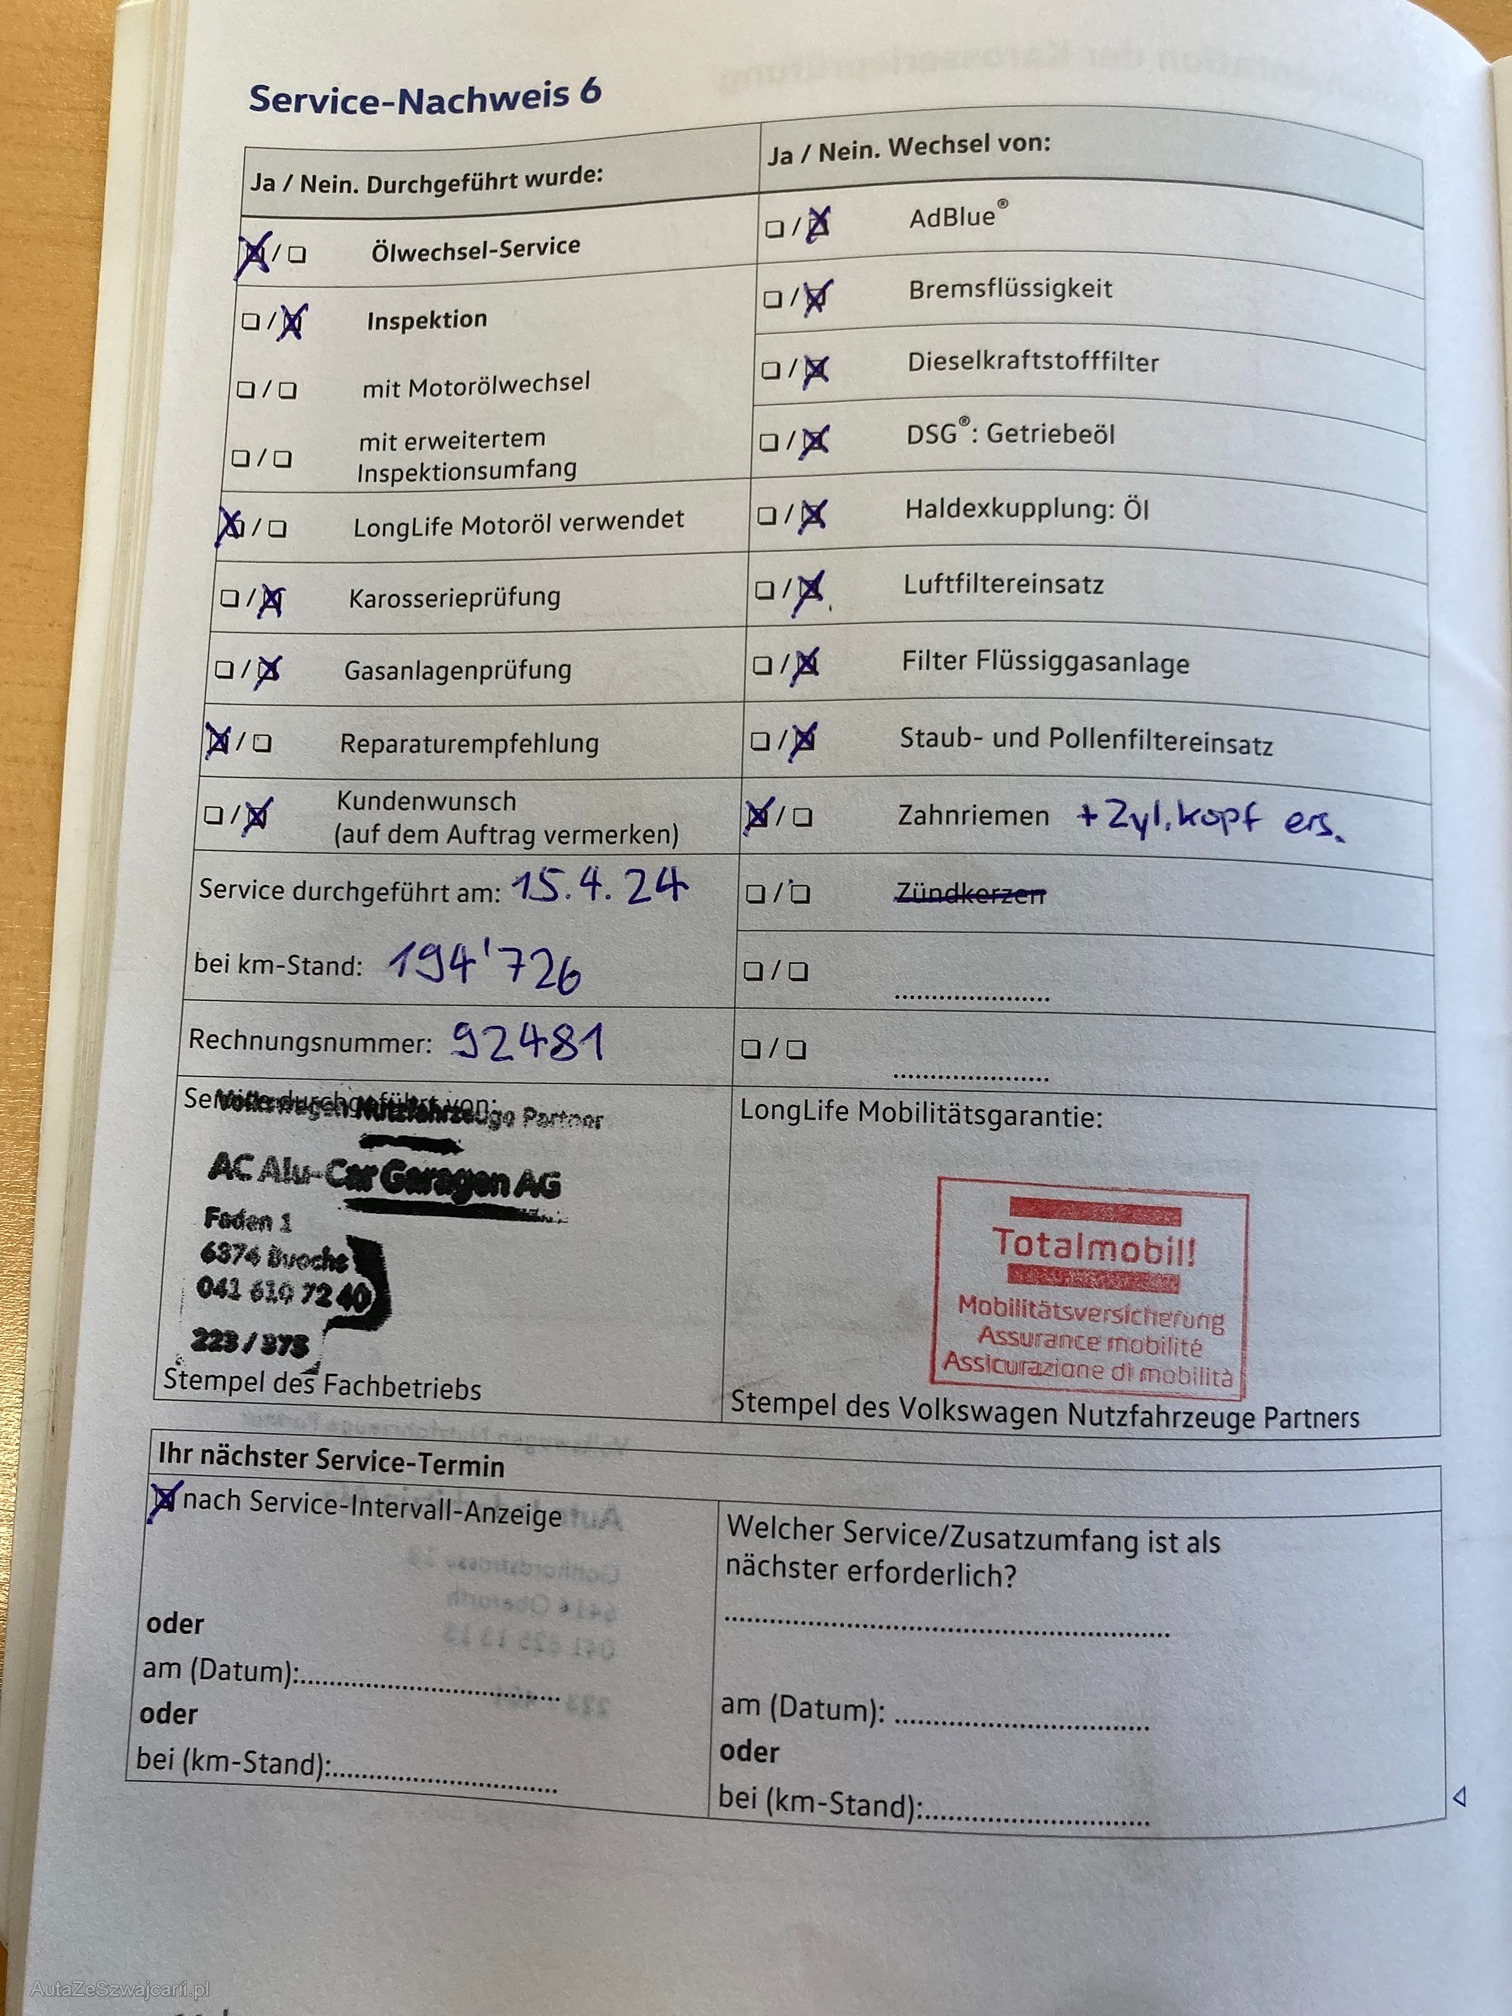 Service-Nachweis 6
Ja / Nein. Durchgeführt wurde:
☒ / ☐ Ölwechsel-Service
☐ / ☒ Inspektion
☐ / ☐ mit Motorölwechsel
☐ / ☐ mit erweitertem
Inspektionsumfang
☒ / ☐ LongLife Motoröl verwendet
☐ / ☒ Karosserieprüfung
☐ / ☒ Gasanlagenprüfung
☒ / ☐ Reparaturempfehlung
☐ / ☒ Kundenwunsch
(auf dem Auftrag vermerken)
Service durchgeführt am: 15.4.24
bei km-Stand: 194'726
Rechnungsnummer: 92481
Ja / Nein. Wechsel von:
☐ / ☒ AdBlue®
☐ / ☒ Bremsflüssigkeit
☐ / ☒ Dieselkraftstofffilter
☐ / ☒ DSG®: Getriebeöl
☐ / ☒ Haldexkupplung: Öl
☐ / ☒ Luftfiltereinsatz
☐ / ☒ Filter Flüssiggasanlage
☐ / ☒ Staub- und Pollenfiltereinsatz
☒ / ☐ Zahnriemen + Zyl.kopf ers.
☐ / ☐ Zündkerzen
☐ / ☐ ......................
☐ / ☐ ......................
Service durchgeführt von:
Volkswagen Nutzfahrzeuge Partner
AC Alu-Car Garagen AG
Faden 1
6374 Buochs
041 610 72 40
223 / 373
Stempel des Fachbetriebs
LongLife Mobilitätsgarantie:
Totalmobil!
Mobilitätsversicherung
Assurance mobilité
Assicurazione di mobilità
Stempel des Volkswagen Nutzfahrzeuge Partners
Ihr nächster Service-Termin
☒ nach Service-Intervall-Anzeige
oder
am (Datum):......................
oder
bei (km-Stand):......................
Welcher Service/Zusatzumfang ist als
nächster erforderlich?
......................
am (Datum): ......................
oder
bei (km-Stand):......................
AutaZeSzwajcarii.pl